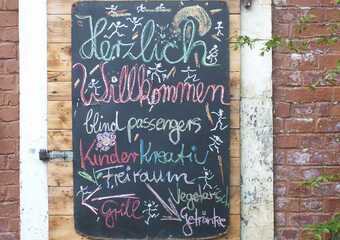 Herzlich
Willkommen
blind passengers
Kinder Kreativ
Freiraum
Vegetarisch
Grill
Getränke